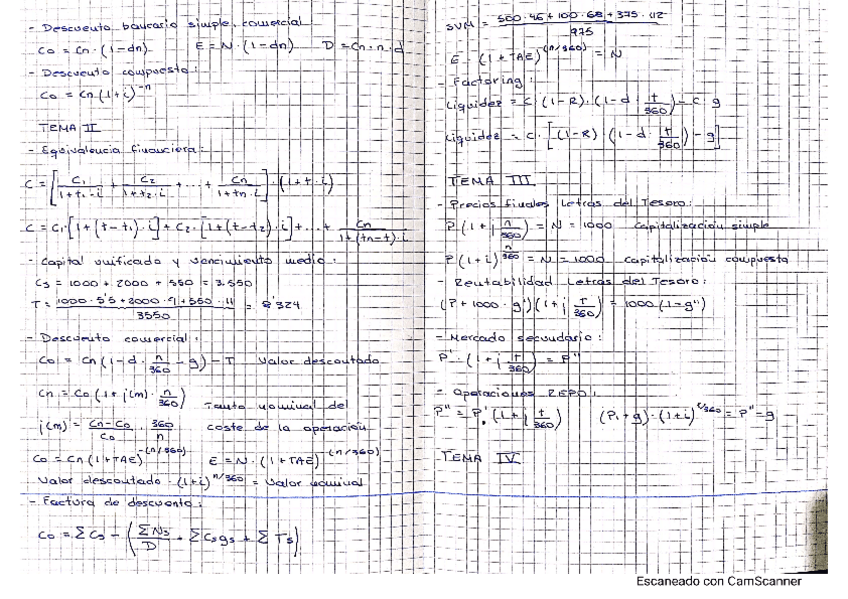 - Descuento bancario simple, comercial
Co = Cn · (1-dn) E = N · (1-dn) D = Cn · n · d
- Descuento compuesto:
Co = Cn (1+i)^-n
TEMA II
- Equivalencia financiera:
C = [C1/(1+t1·i) + C2/(1+t2·i) + ... + Cn/(1+tn·i)] · (1+t·i)
C = C1·[1+(t-t1)·i] + C2·[1+(t-t2)·i] + ... + Cn/(1+(tn-t)·i)
- Capital unificado y vencimiento medio:
C3 = 1000 + 2000 + 550 = 3.550
T = (1000·5'5 + 2000·9 + 550·11)/3550 = 8'324
- Descuento comercial:
Co = Cn (1-d·n/360 - g) - T Valor descontado
Cn = Co (1+i(m)·n/360) Tanto nominal del
i(m) = (Cn-Co)/Co · 360/n coste de la operación
Co = Cn (1+TAE)^-(n/360) E = N·(1+TAE)^-(n/360)
Valor descontado · (1+i)^n/360 = Valor nominal
- Factura de descuento:
Co = ΣCs - (ΣNs/D + ΣCsgs + ΣTs)
SVM = (500·46 + 100·68 + 375·112)/975
E · (1+TAE)^(n/360) = N
- Factoring:
Liquidez = C·(1-R)·(1-d·t/360) - C·g
Liquidez = C·[(1-R)·(1-d·t/360) - g]
TEMA III
- Precios finales Letras del Tesoro:
P(1+i n/360) = N = 1000 Capitalización simple
P(1+i)^n/360 = N = 1000 Capitalización compuesta
- Rentabilidad Letras del Tesoro:
(P+1000·g')(1+i t/360) = 1000(1-g'')
- Mercado secundario:
P'·(1+i t/360) = P''
- Operaciones REPO:
P'' = P'·(1+i t/360) (P1+g)·(1+i)^t/360 = P''-g
TEMA IV
Escaneado con CamScanner